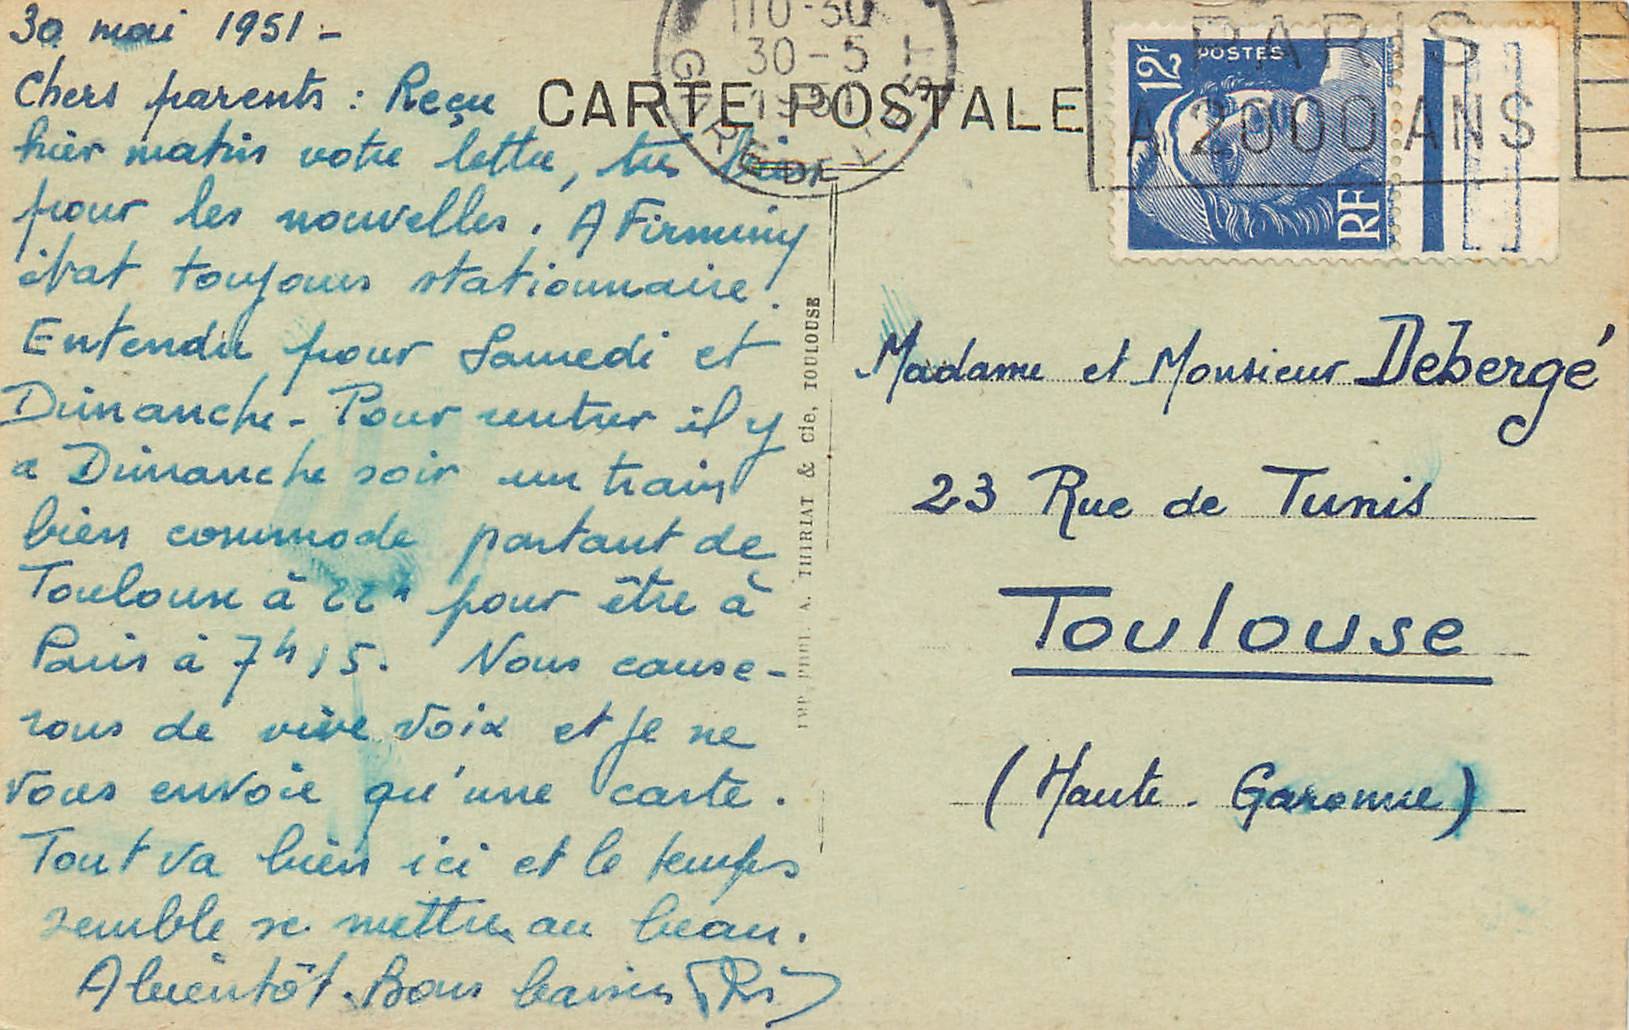 30 mai 1951 -
Chers parents : Reçu
hier matin votre lettre, très bien
pour les nouvelles. A Firminy
état toujours stationnaire.
Entendu pour Samedi et
Dimanche - Pour rentrer il y
a Dimanche soir un train
bien commode partant de
Toulouse à 22h pour être à
Paris à 7h15. Nous cause-
rons de vive voix et je ne
vous envoie qu'une carte.
Tout va bien ici et le temps
semble se mettre au beau.
A bientôt. Bons baisers
CARTE POSTALE
10-30
30-5
1951
GARE DE L'EST
PARIS
A 2000 ANS
POSTES
12F
RF
IMP. PHOT. A. THIRIAT & Cie, TOULOUSE
Madame et Monsieur Debergé
23 Rue de Tunis
Toulouse
(Haute-Garonne)